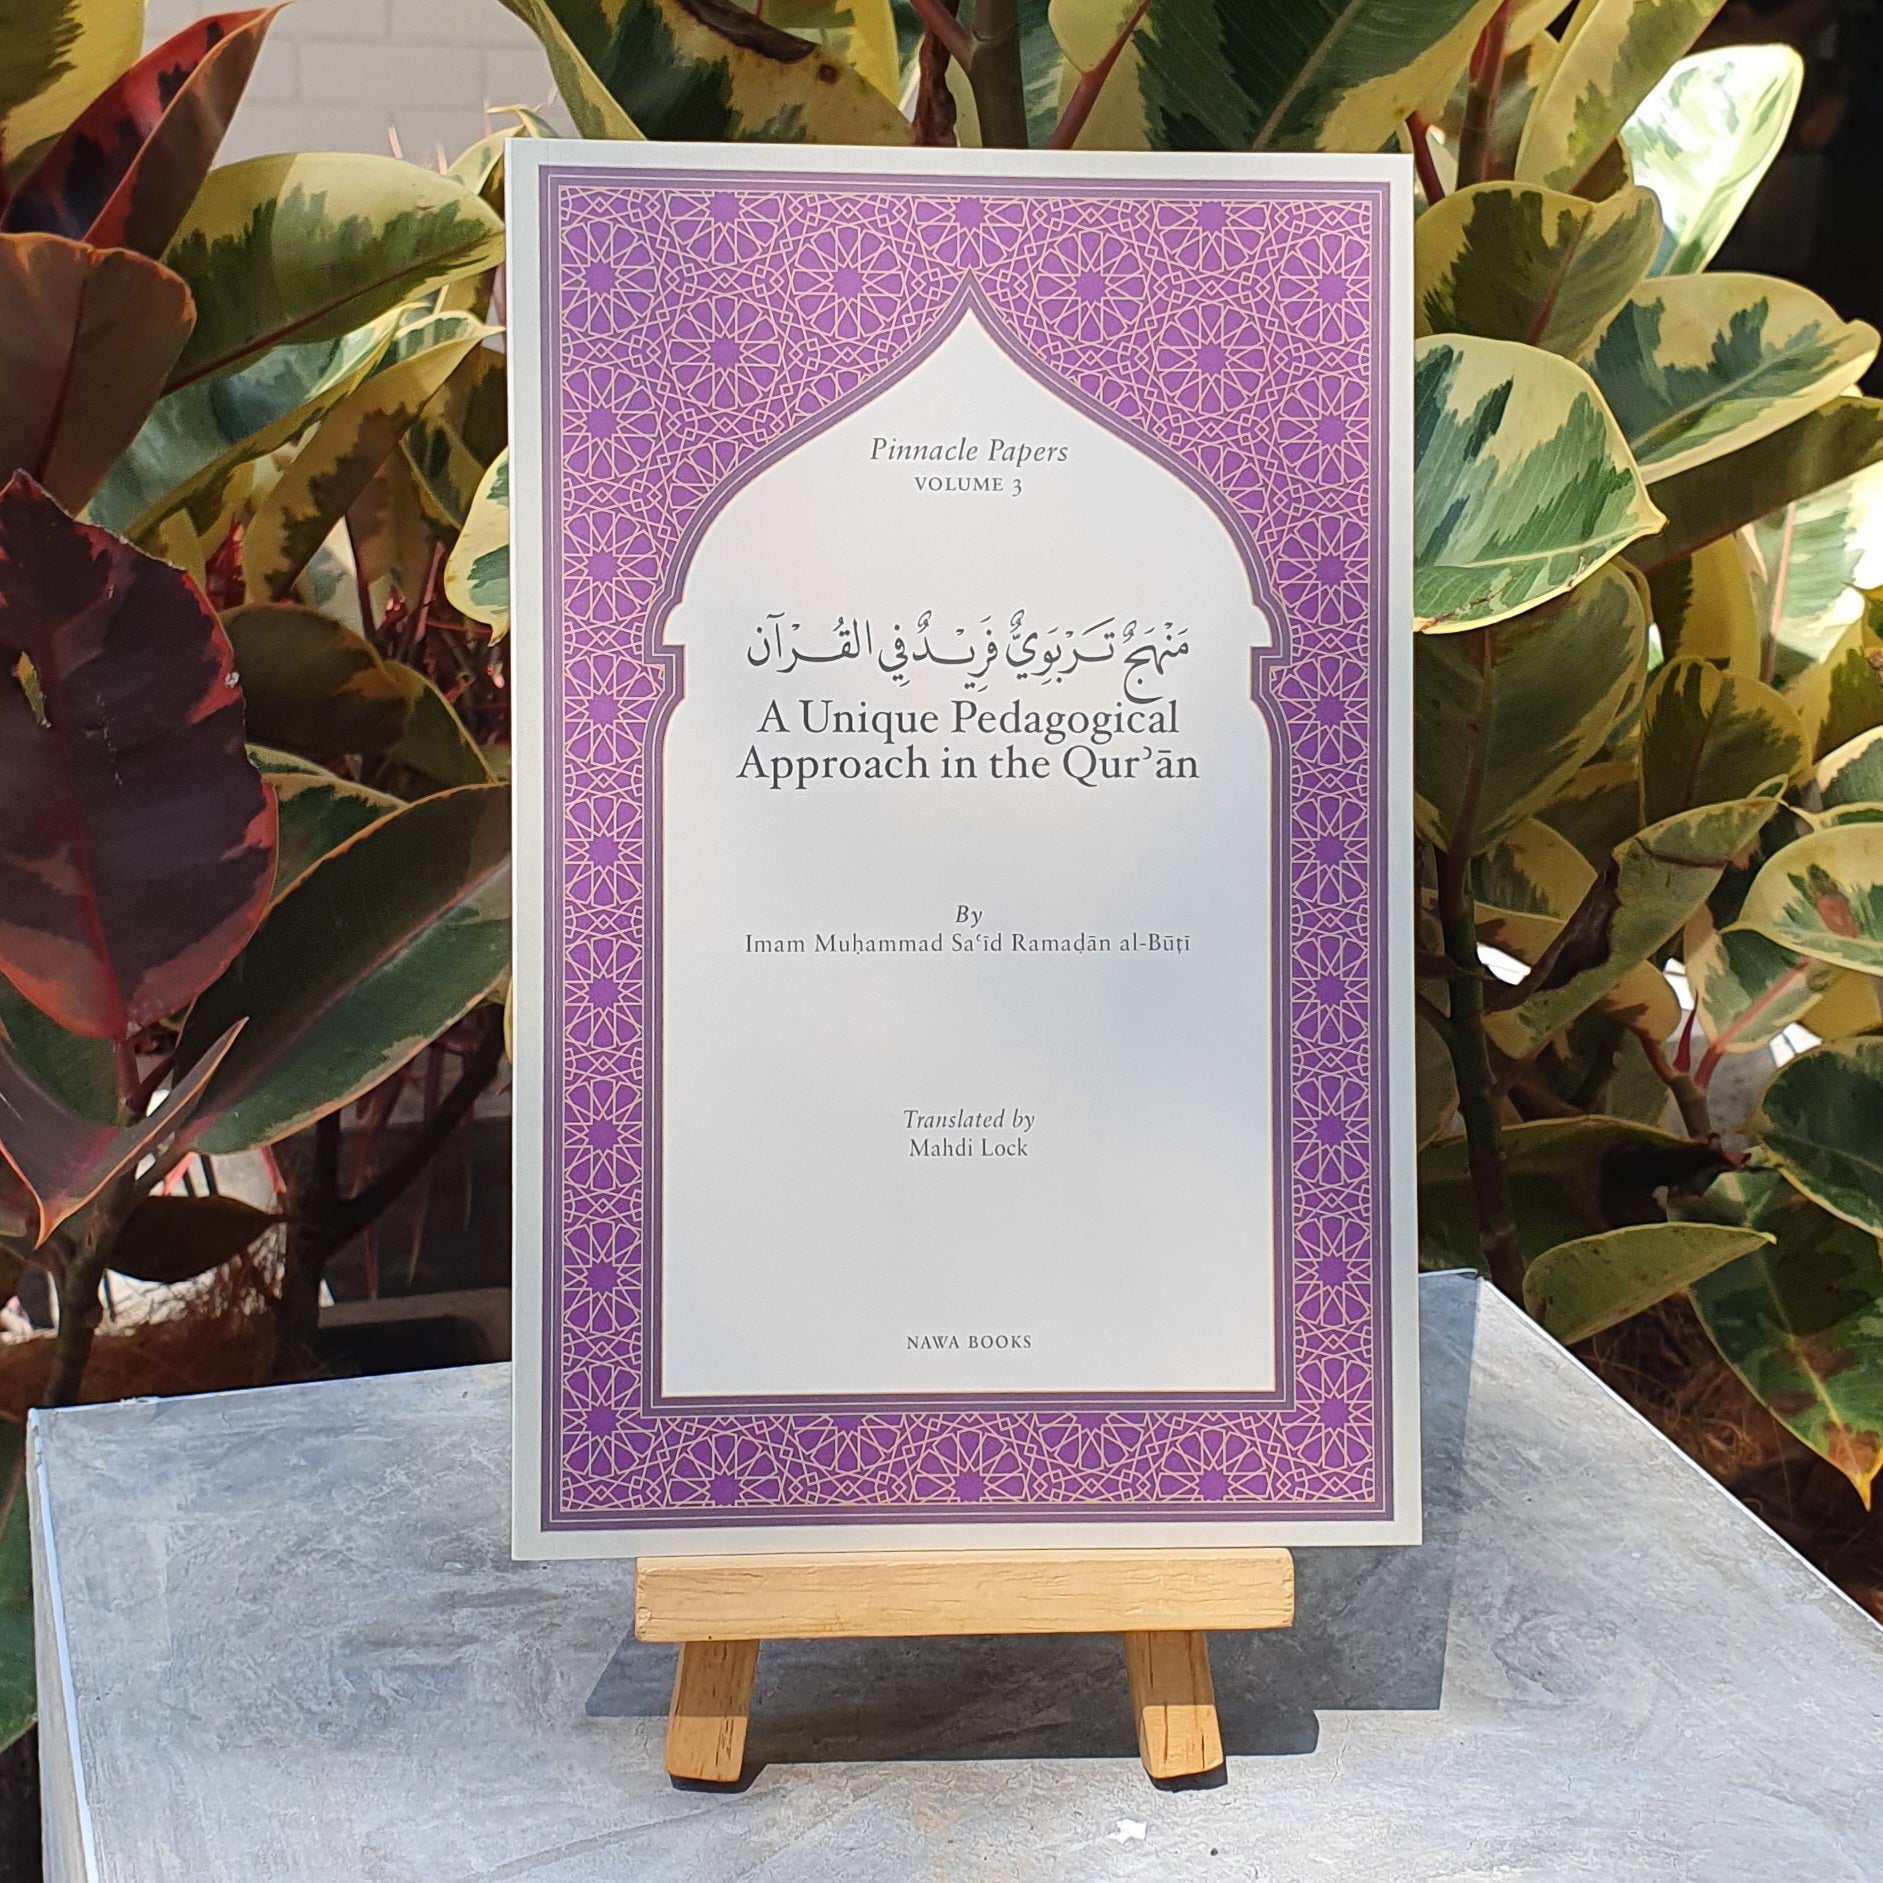 Pinnacle Papers
VOLUME 3
مَنْهَجٌ تَرْبَوِيٌّ فَرِيْدٌ فِي القُرْآن
A Unique Pedagogical
Approach in the Qurʾān
By
Imam Muḥammad Saʿīd Ramaḍān al-Būṭī
Translated by
Mahdi Lock
NAWA BOOKS